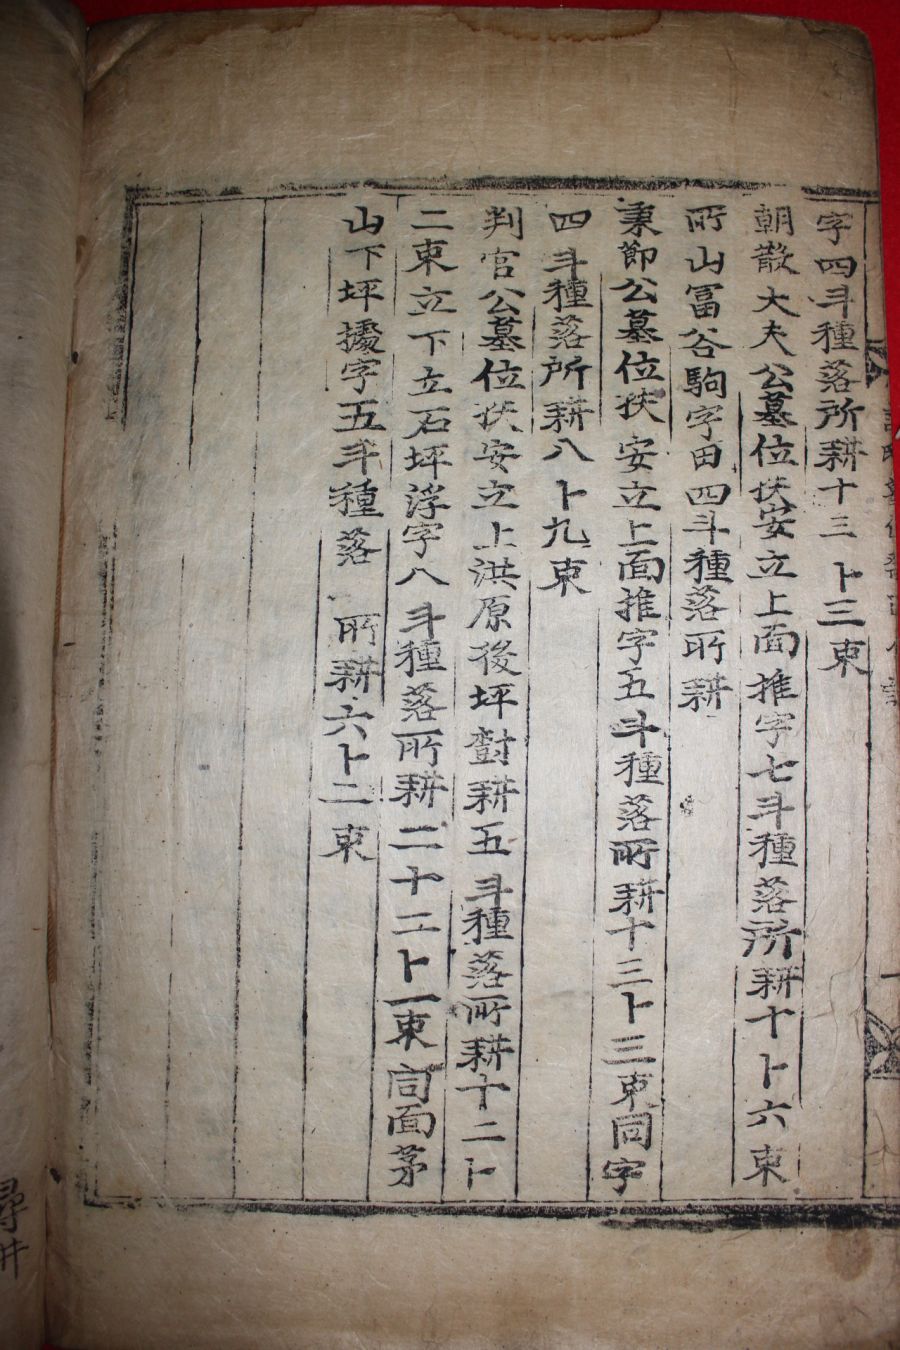 字四斗種落所耕十三卜三束
朝散大夫公墓位扶安立上面推字七斗種落所耕十卜六束
所山冨谷駒字田四斗種落所耕
秉節公墓位扶安立上面推字五斗種落所耕十三卜三束同字
四斗種落所耕八卜九束
判官公墓位扶安立上洪原後坪對耕五斗種落所耕十二卜
二束立下立石坪浮字八斗種落所耕二十二卜一束同面茅
山下坪據字五斗種落所耕六卜二束